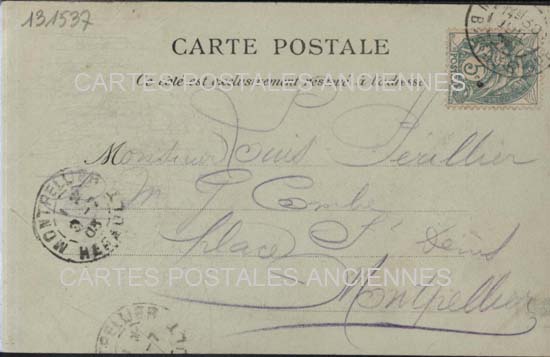 131537
CARTE POSTALE
Ce côté est exclusivement réservé à l'adresse
CARTES POSTALES ANCIENNES
Monsieur Louis Périllier
P. Combe
place St Denis
Montpellier
MONTPELLIER
HERAULT
CARTES POSTALES ANCIENNES